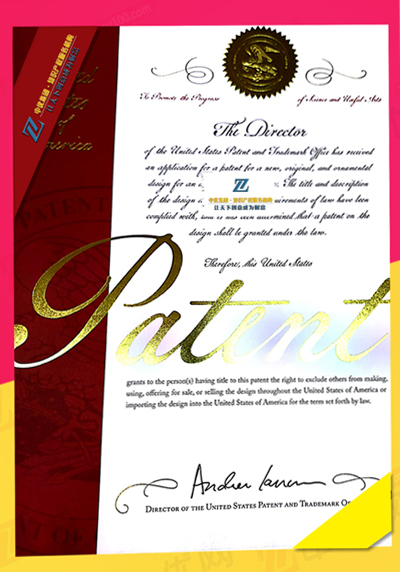 ZZ
United
States
of
America
To Promote the Progress of Science and Useful Arts
The Director
of the United States Patent and Trademark Office has received
an application for a patent for a new, original, and ornamental
design for an The title and description
of the design requirements of law have been
complied with, and it has been determined that a patent on the
design shall be granted under the law.
ZZ
知识产权服务机构
让天下创意成为财富
Therefore, this United States
Patent
grants to the person(s) having title to this patent the right to exclude others from making,
using, offering for sale, or selling the design throughout the United States of America or
importing the design into the United States of America for the term set forth by law.
Director of the United States Patent and Trademark O